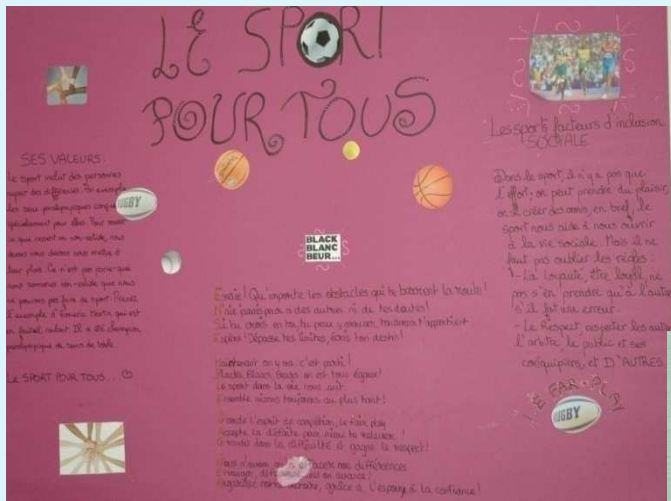 LE SPORT
POUR TOUS
SES VALEURS:
Le sport inclut des personnes
ayant des différences. Par exemple
les jeux paralympiques conçus
spécialement pour elles. Pour
ce que ressent un non-valide, nous
devons nous mettre à
leur place. Ce n'est pas parce que
nous sommes non-valide que nous
ne pouvons pas faire de sport. Prenez
l'exemple d' Martin qui est
en fauteuil roulant. Il a été champion
paralympique de tennis de table.
Le SPORT POUR TOUS...
RUGBY
BLACK
BLANC
BEUR...
Essaie! Qu'importe les obstacles qui te barrent la route!
N'aie pas peur des autres ni de tes doutes!
Si tu crois en toi, tu peux y arriver, t'appartient
Espère! Dépasse tes limites, écris ton destin!
Maintenant on y va, c'est parti!
Blacks, Blancs, Beurs on est tous égaux!
Le sport dans la vie nous unit
Ensemble visons toujours au plus haut!
l'esprit de compétition, le fair play
Accepte la défaite pour mieux te relever!
dans la difficulté et gagne le respect!
Nous nos différences
on avance!
grâce à l'espoir, à la confiance!
Les sports facteurs d'inclusion
SOCIALE
Dans le sport, il n'y a pas que
l'effort, on peut prendre du plaisir,
on créer des amis, en bref, le
sport nous aide à nous ouvrir
à la vie sociale. Mais il ne
faut pas oublier les règles:
- La loyauté, être loyal, ne
pas s'en prendre qu'à l'autre
s'il fait une erreur.
- Le Respect, respecter les autres
l'arbitre, le public et ses
coéquipiers, et D'AUTRES.
LE FAIR-PLAY
RUGBY